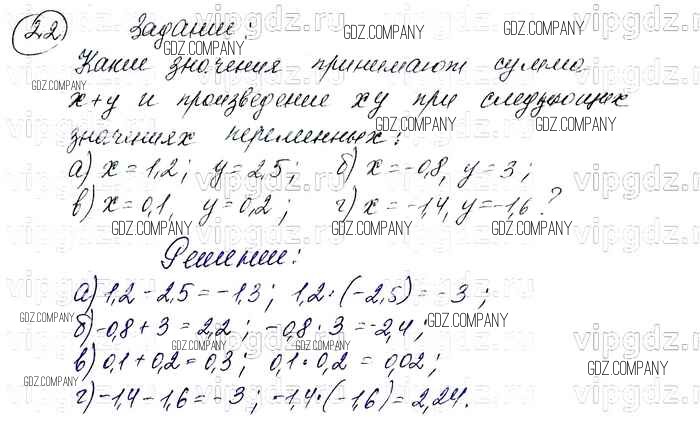 22) Задание:
Какие значения принимают сумма
x+y и произведение xy при следующих
значениях переменных:
а) x = 1,2; y = 2,5; б) x = -0,8, y = 3;
в) x = 0,1, y = 0,2; г) x = -1,4, y = -1,6?
Решение:
а) 1,2 - 2,5 = -1,3; 1,2 · (-2,5) = -3;
б) -0,8 + 3 = 2,2; -0,8 · 3 = -2,4;
в) 0,1 + 0,2 = 0,3; 0,1 · 0,2 = 0,02;
г) -1,4 - 1,6 = -3; -1,4 · (-1,6) = 2,24.